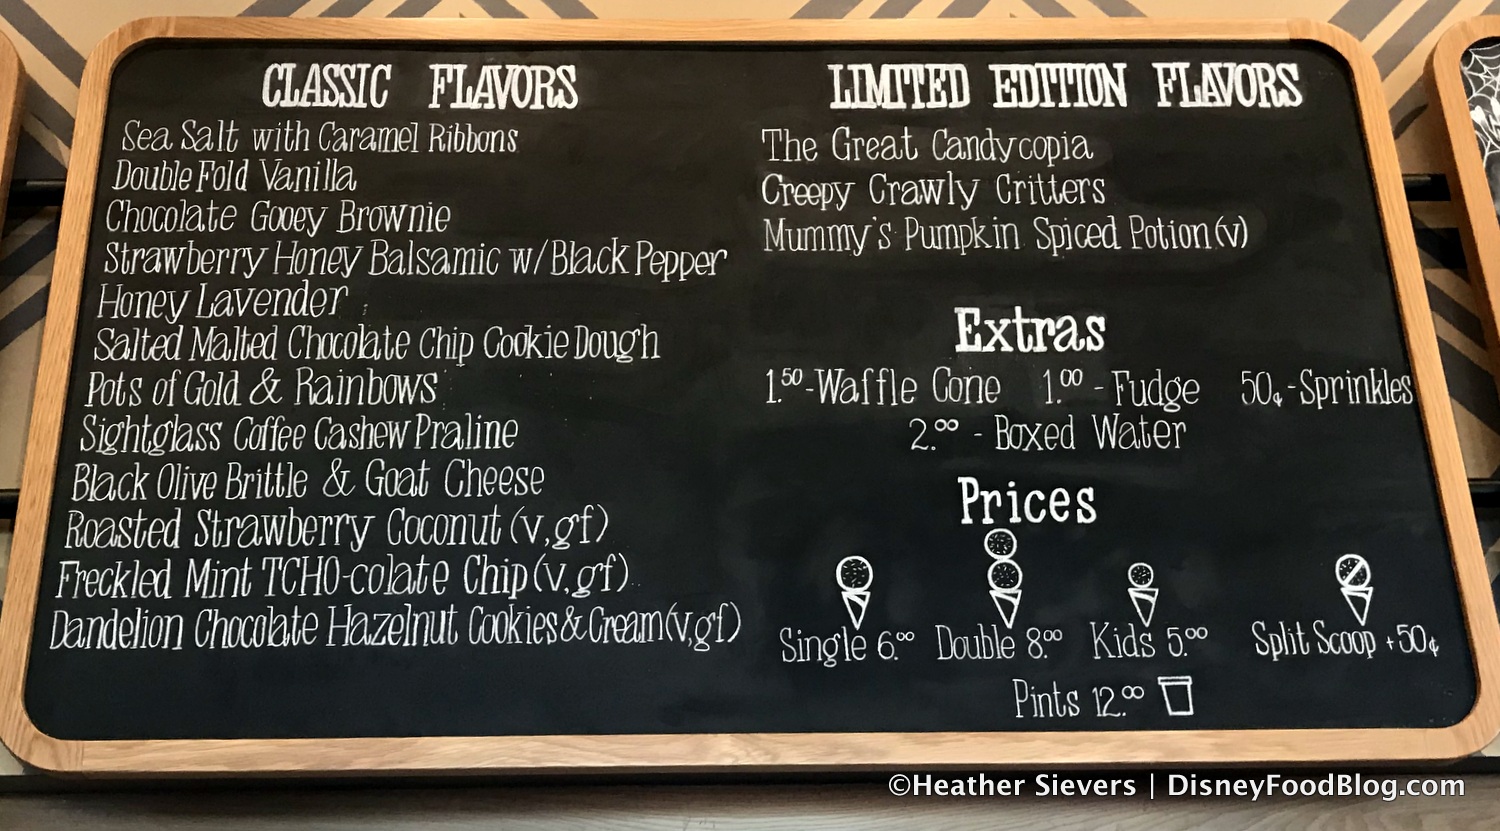 CLASSIC FLAVORS
Sea Salt with Caramel Ribbons
Double Fold Vanilla
Chocolate Gooey Brownie
Strawberry Honey Balsamic w/Black Pepper
Honey Lavender
Salted Malted Chocolate Chip Cookie Dough
Pots of Gold & Rainbows
Sightglass Coffee Cashew Praline
Black Olive Brittle & Goat Cheese
Roasted Strawberry Coconut (v,gf)
Freckled Mint TCHO-colate Chip (v,gf)
Dandelion Chocolate Hazelnut Cookies & Cream (v,gf)
LIMITED EDITION FLAVORS
The Great Candycopia
Creepy Crawly Critters
Mummy's Pumpkin Spiced Potion (v)
Extras
1.50 - Waffle Cone 1.00 - Fudge 50¢ - Sprinkles
2.00 - Boxed Water
Prices
Single 6.00 Double 8.00 Kids 5.00 Split Scoop +50¢
Pints 12.00
©Heather Sievers | DisneyFoodBlog.com